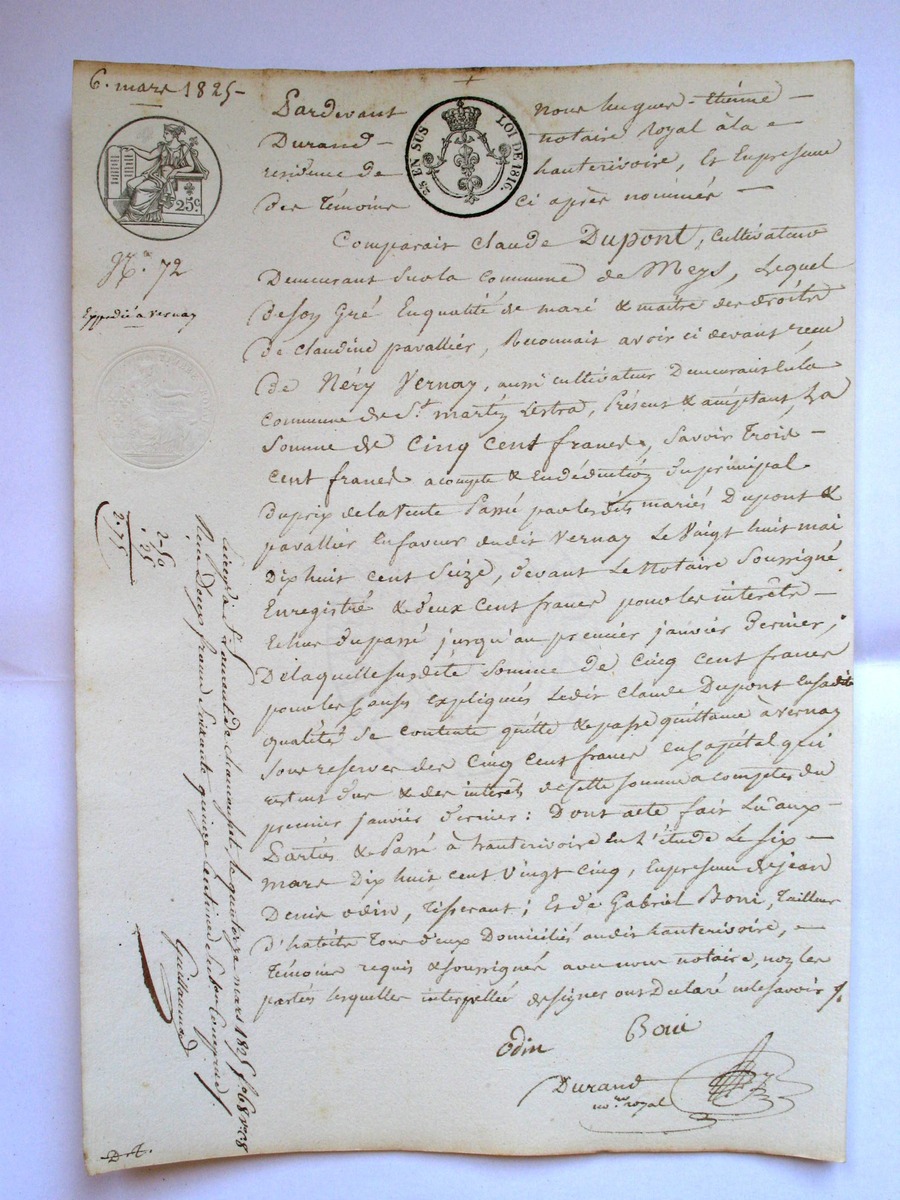 6. mars 1825 -
Pardevant nous hugues - étienne -
Durand - notaire Royal à la -
residence de hauterivoire, Et En presence
des témoins ci après nommés -
28 EN SUS LOI DE 1816.
25c
Nº. 72
Expedié a vernay
Comparait Claude Dupont, cultivateur
Demeurant sur la commune de Meys, Lequel
de son gré En qualité de mari & maitre des droits
de claudine pavallier, Reconnait avoir ci devant recu
de Néry Vernay, aussi cultivateur Demeurant En la
commune de St. martin Lestra, Présent & acceptant, La
somme de Cinq Cent francs, savoir Trois -
cent francs acompte & En déduction du principal
du prix de la vente Passé par les dits mariés Dupont &
pavallier En faveur du dit Vernay Le Vingt huit mai
Dix huit cent Seize, devant Le Notaire Soussigné
Enregistré & deux cent francs pour les intérêts -
Echus du passé jusqu'au premier janvier Dernier;
De laquelle susdite Somme de Cinq cent francs
pour les causes expliquées Ledit Claude Dupont En sadite
qualité Se contente quitte & passe quittance à Vernay
Sous reserves des Cinq cent francs En Capital qui
restent dus & des interets de cette somme a comptés du
premier janvier dernier : Dont acte fait Lu aux -
Parties & Passé à hauterivoire En L'étude Le six -
mars Dix huit cent Vingt Cinq, En presence de jean
Denis odin, Tisserant; Et de Gabriel Boni, Tailleur
d'habits Tous deux Domiciliés audit hauterivoire, -
Témoins requis & soussignés avec nous notaire, non les
parties lesquelles interpellée de signer ont Declaré ne le savoir
odin Boni
Durand
nore royal
2.50
.25
2.75
Enregistré à St. simphorien le quatorze mars 1825 fo 68
Reçu Deux francs soixante quinze centimes
Guillaumard